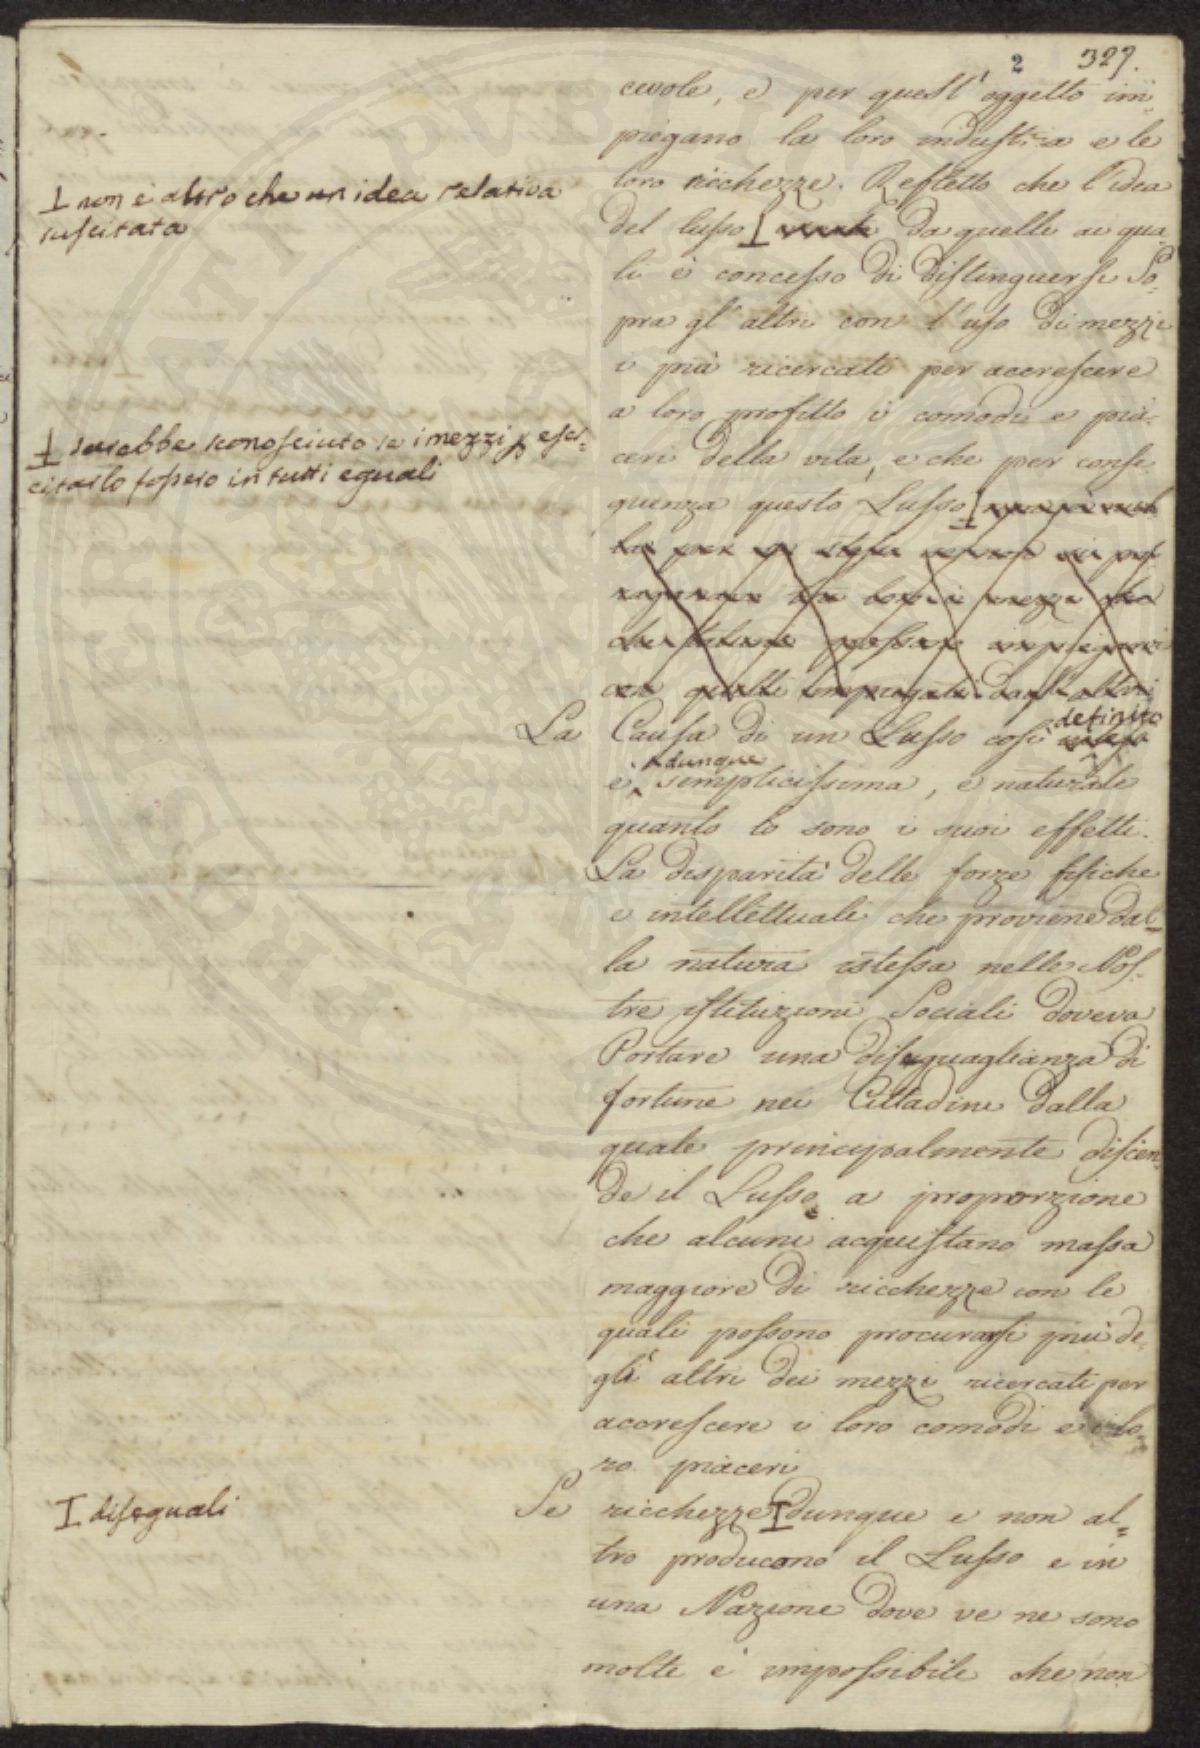 2 327.
cevole, e per quest'oggetto im-
piegano la loro industria e le
loro ricchezze. Refletto che l'idea
del lusso da quelli ai qua-
li è concesso di distinguersi So-
pra gl'altri con l'uso di mezzi
i più ricercati per accrescere
a loro profitto i comodi e pia-
ceri della vita, e che per conse-
guenza questo Lusso
con quelli impiegati dagl'altri
La Causa di un Lusso così definito
è dunque semplicissima, e naturale
quanto lo sono i suoi effetti.
La disparità delle forze fisiche
e intellettuali che proviene dal-
la natura istessa nelle Nos-
tre istituzioni Sociali doveva
Portare una disuguaglianza di
fortune nei Cittadini dalla
quale principalmente discen-
de il Lusso a proporzione
che alcuni acquistano massa
maggiore di ricchezze con le
quali possono procurarsi più de-
gli altri dei mezzi ricercati per
accrescere i loro comodi e i lo-
ro piaceri
Le ricchezze dunque e non al-
tro producono il Lusso e in
una Nazione dove ve ne sono
molte è impossibile che non
non è altro che un idea relativa
suscitata
sarebbe sconosciuto se i mezzi p eser-
citarlo fossero in tutti eguali
diseguali